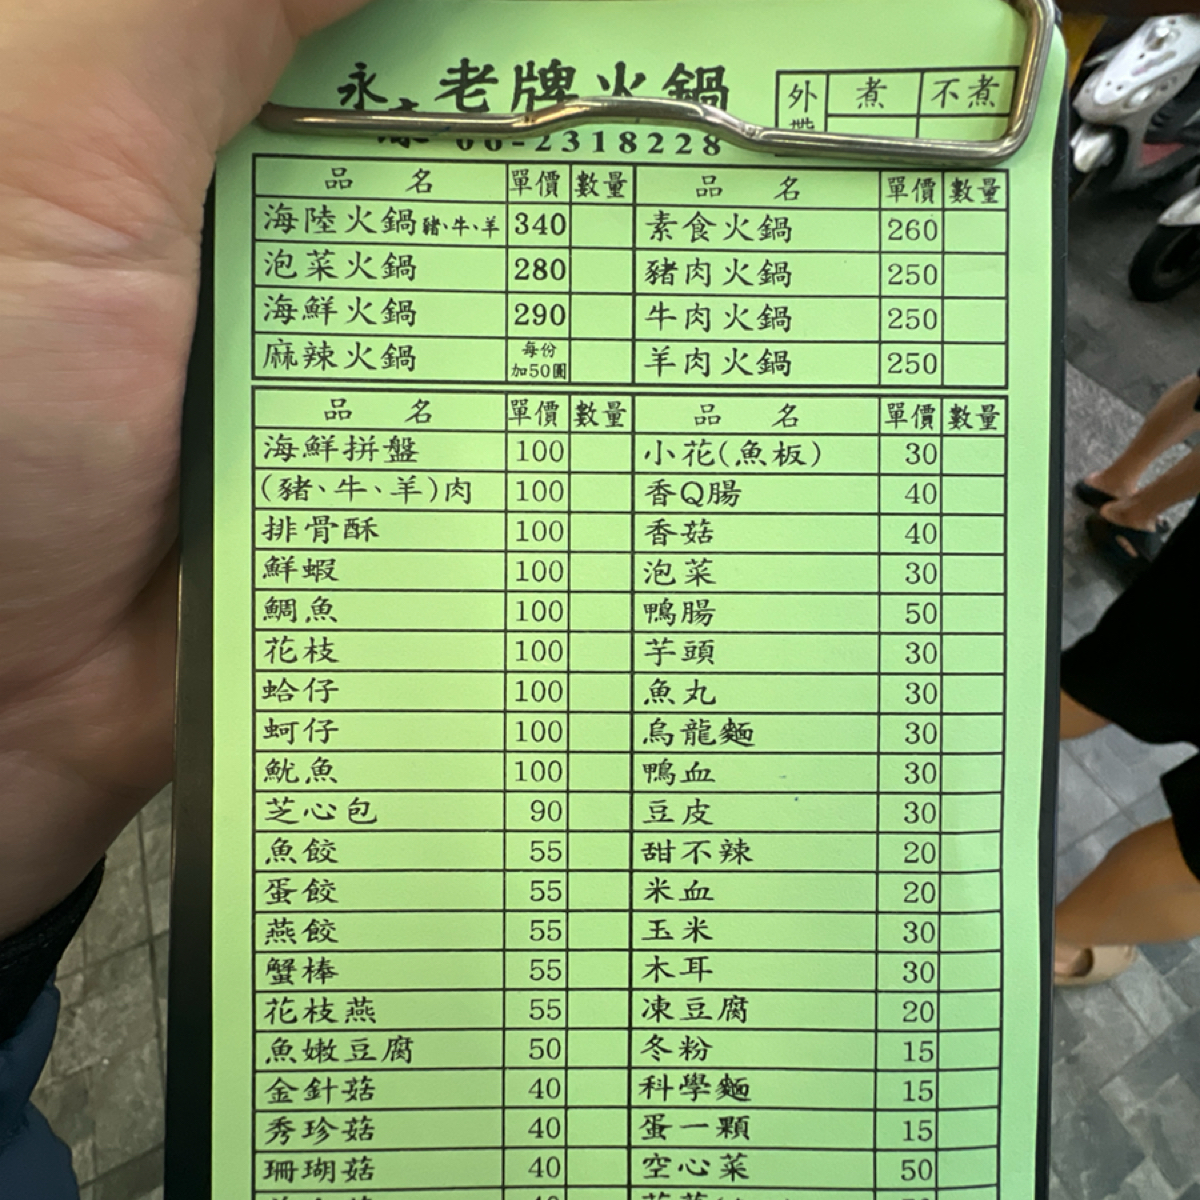 永 老牌火鍋
06-2318228
外 煮 不煮
品名 單價 數量 品名 單價 數量
海陸火鍋 豬、牛、羊 340 素食火鍋 260
泡菜火鍋 280 豬肉火鍋 250
海鮮火鍋 290 牛肉火鍋 250
麻辣火鍋 每份加50圓 羊肉火鍋 250
品名 單價 數量 品名 單價 數量
海鮮拼盤 100 小花(魚板) 30
(豬、牛、羊)肉 100 香Q腸 40
排骨酥 100 香菇 40
鮮蝦 100 泡菜 30
鯛魚 100 鴨腸 50
花枝 100 芋頭 30
蛤仔 100 魚丸 30
蚵仔 100 烏龍麵 30
魷魚 100 鴨血 30
芝心包 90 豆皮 30
魚餃 55 甜不辣 20
蛋餃 55 米血 20
燕餃 55 玉米 30
蟹棒 55 木耳 30
花枝燕 55 凍豆腐 20
魚嫩豆腐 50 冬粉 15
金針菇 40 科學麵 15
秀珍菇 40 蛋一顆 15
珊瑚菇 40 空心菜 50